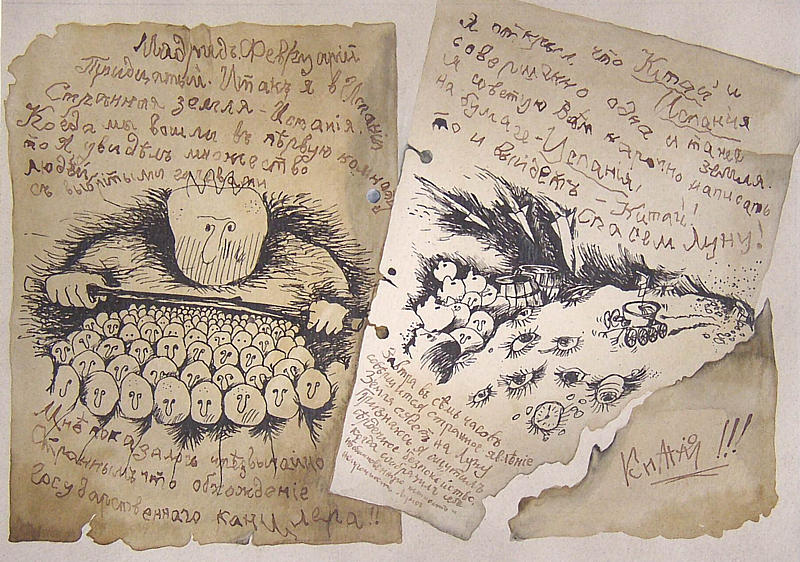 Мадридъ. Февруарій
Тридцатый. Итакъ я в Испаніи
Странная земля - Испанія.
Когда мы вошли въ первую комнату
то я увидѣлъ множество
людей
съ выбритыми головами
Мнѣ показалось чрезвычайно
страннымъ что обхожденіе
государственнаго канцлера!!
Я открыл что Китай и
Испания
совершенно одна и таже земля.
я советую вам нарочно написать
на бумаге - Испанія!
то и выйдетъ - Китай!!!
Спасем Луну!
Завтра въ семь часовъ
совершится странное явленіе
Земля сядет на Луну
Признаюся я ощутилъ
сердечное безпокойство,
когда вообразилъ себѣ
Китай!!!